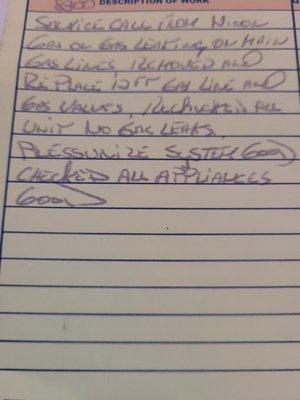 DESCRIPTION OF WORK
SERVICE CALL FROM
GAS ON GAS LEAKING ON MAIN
GAS LINES REMOVED AND
REPLACE 12FT GAS LINE AND
GAS VALVES. RECHECKED ALL
UNIT NO GAS LEAKS.
PRESSURIZE SYSTEM GOOD
CHECKED ALL APPLIANCES
GOOD